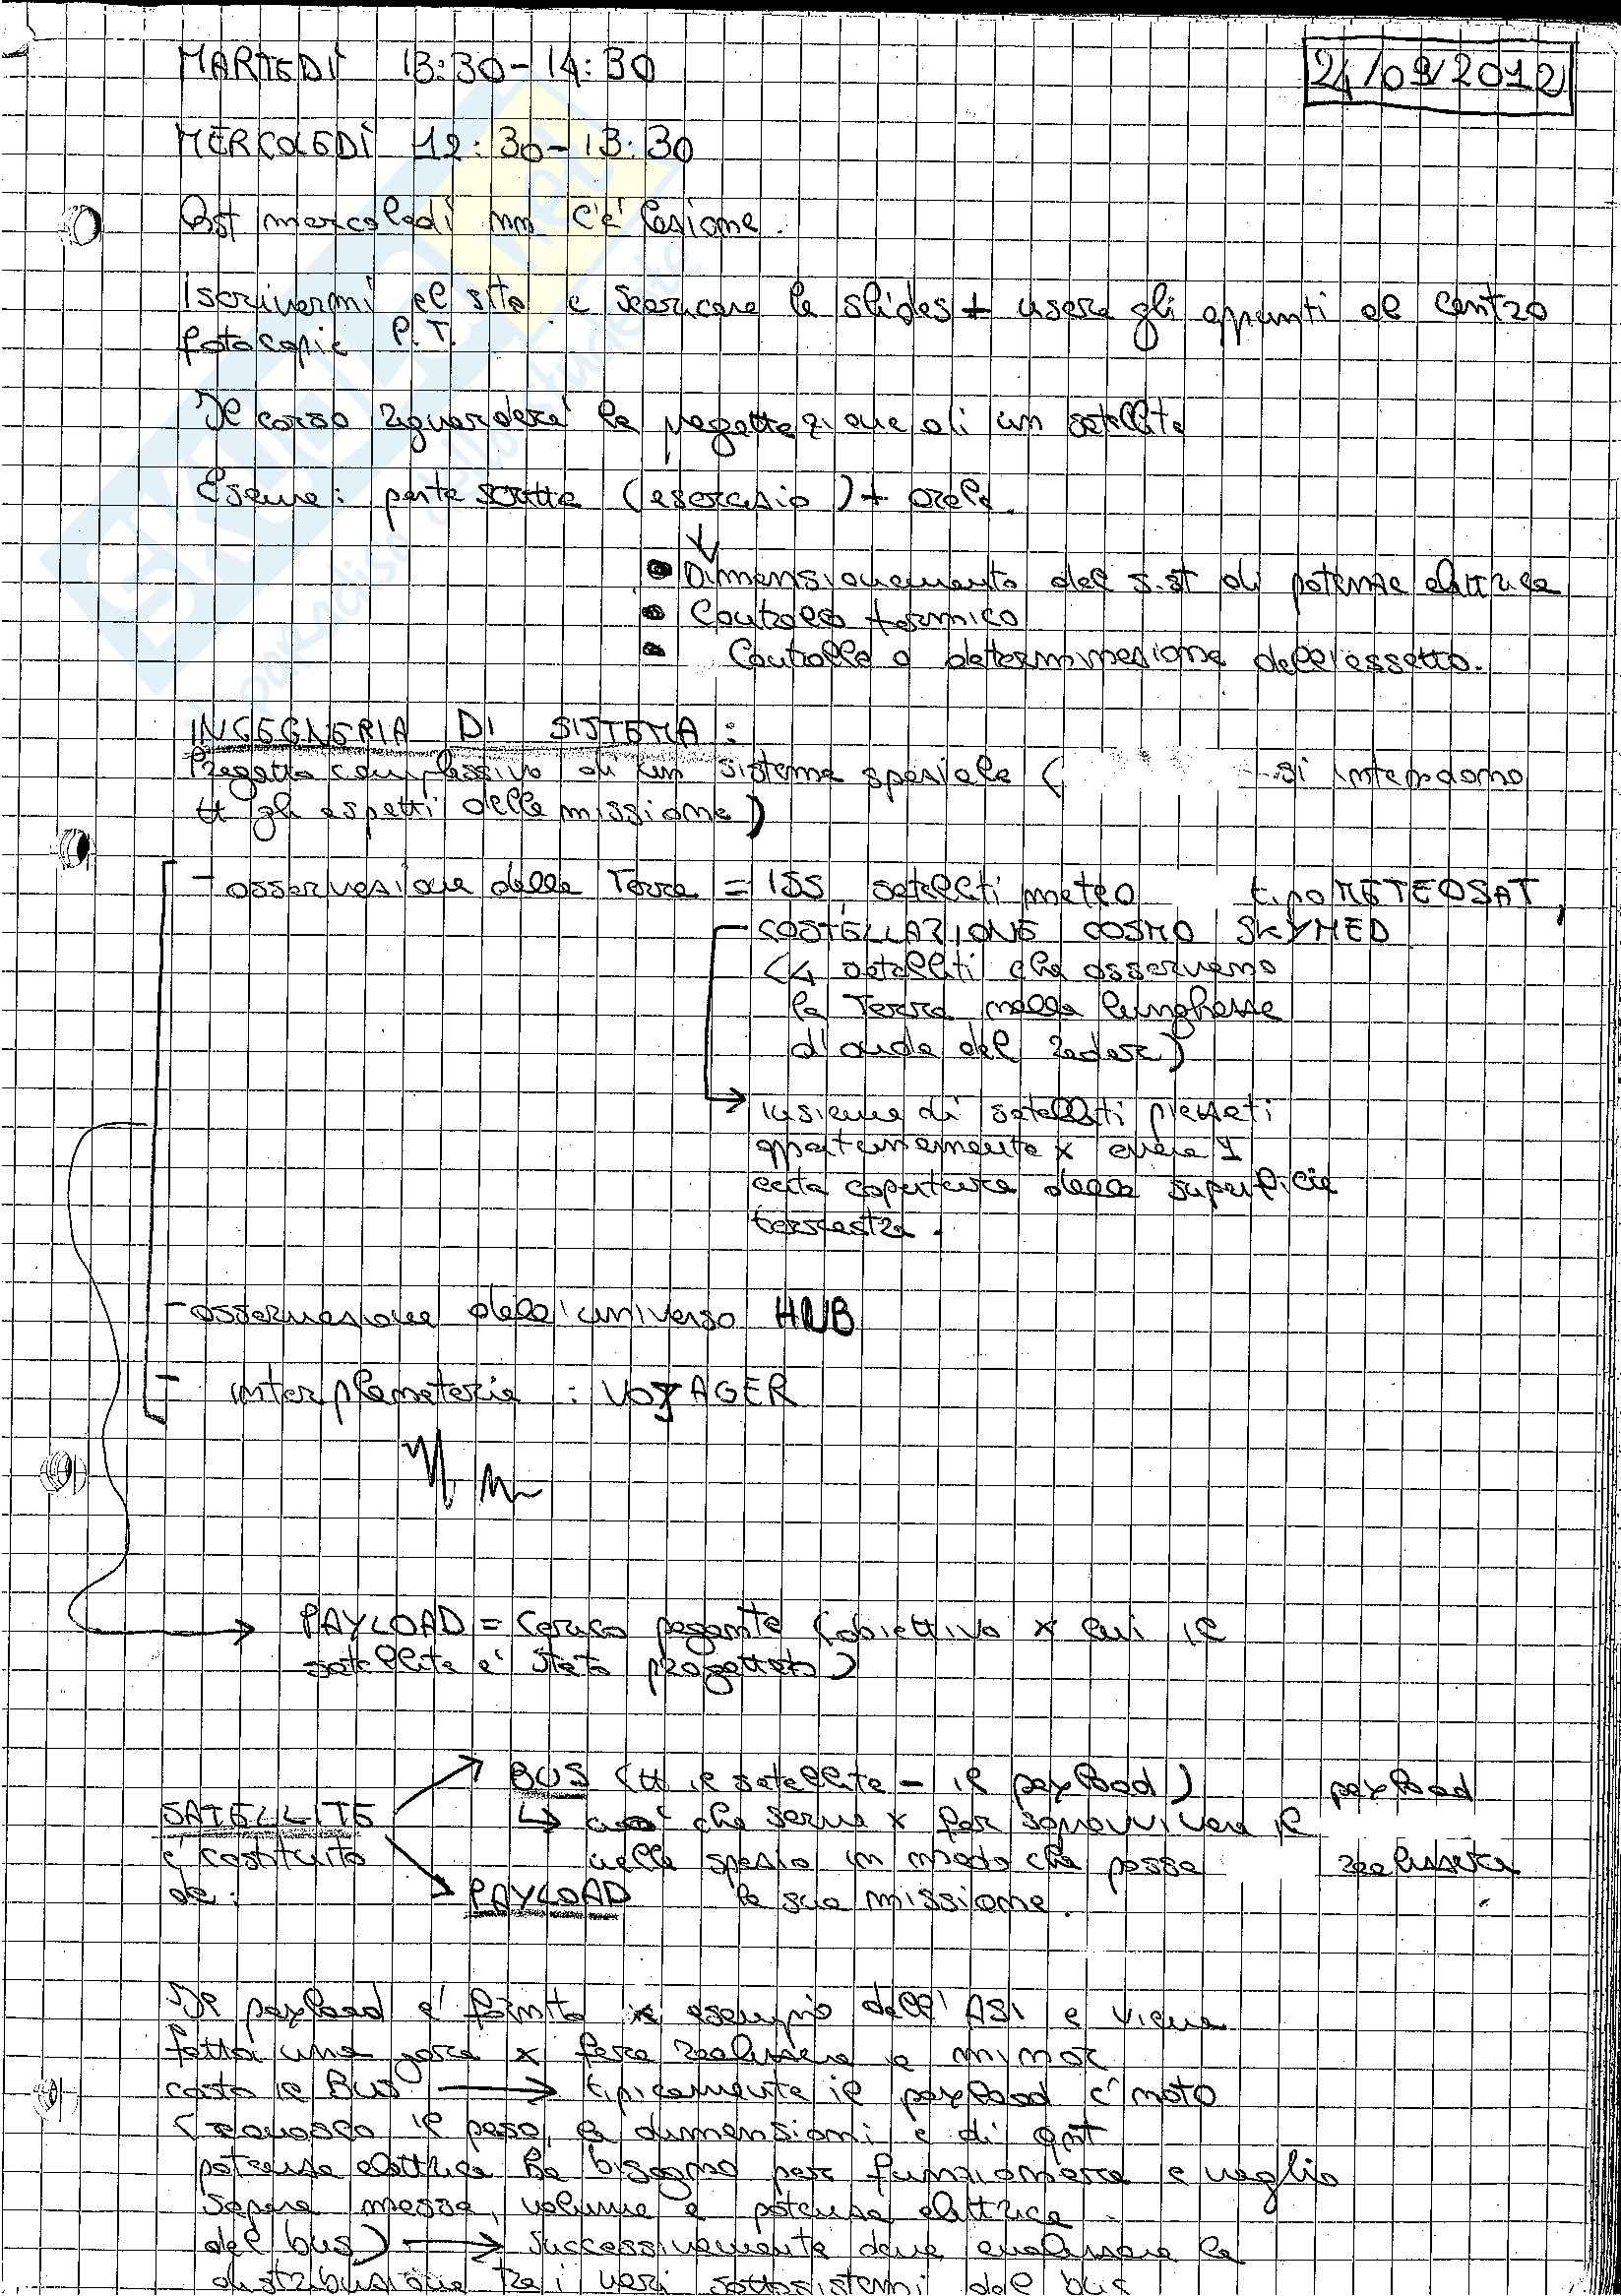 MARTEDÌ 13:30-14:30
24/09/2012
MERCOLEDÌ 12:30-13:30
Qst mercoledì nn c'è lezione.
Iscrivermi al sito e scaricare le slides + usare gli appunti al centro
fotocopie P.T.
Il corso riguarderà la progettazione di un satellite
Esame: parte scritta (esercizio) + orale.
• Dimensionamento del sist di potenza elettrica
• Controllo termico
• Controllo e determinazione dell'assetto.
INGEGNERIA DI SISTEMA:
Progetto complessivo di un sistema spaziale ( si intendono
tt gli aspetti della missione)
- osservazione della Terra = ISS, satelliti meteo tipo METEOSAT,
COSTELLAZIONE COSMO SKYMED
(4 satelliti che osservano
la Terra nella lunghezza
d'onda del radar)
insieme di satelliti piazzati
opportunamente x avere 1
certa copertura della superficie
terrestre.
- osservazione dell'universo HUB
- interplanetaria : VOYAGER
PAYLOAD = carico pagante (obiettivo x cui il
satellite è stato progettato)
BUS (tt il satellite - il payload) payload
SATELLITE
↳ ciò che serve x far sopravvivere il
è costituito
nello spazio in modo che possa realizzare
da:
PAYLOAD la sua missione.
Il payload è fornito x esempio dall'ASI e viene
fatta una gara x fare realizzare a minor
costo il BUS → tipicamente il payload è noto
(conosco il peso, le dimensioni e di qnt
potenza elettrica ha bisogno per funzionare e voglio
sapere massa, volume e potenza elettrica
del bus) → successivamente devo analizzare la
distribuzione tra i vari sottosistemi del bus